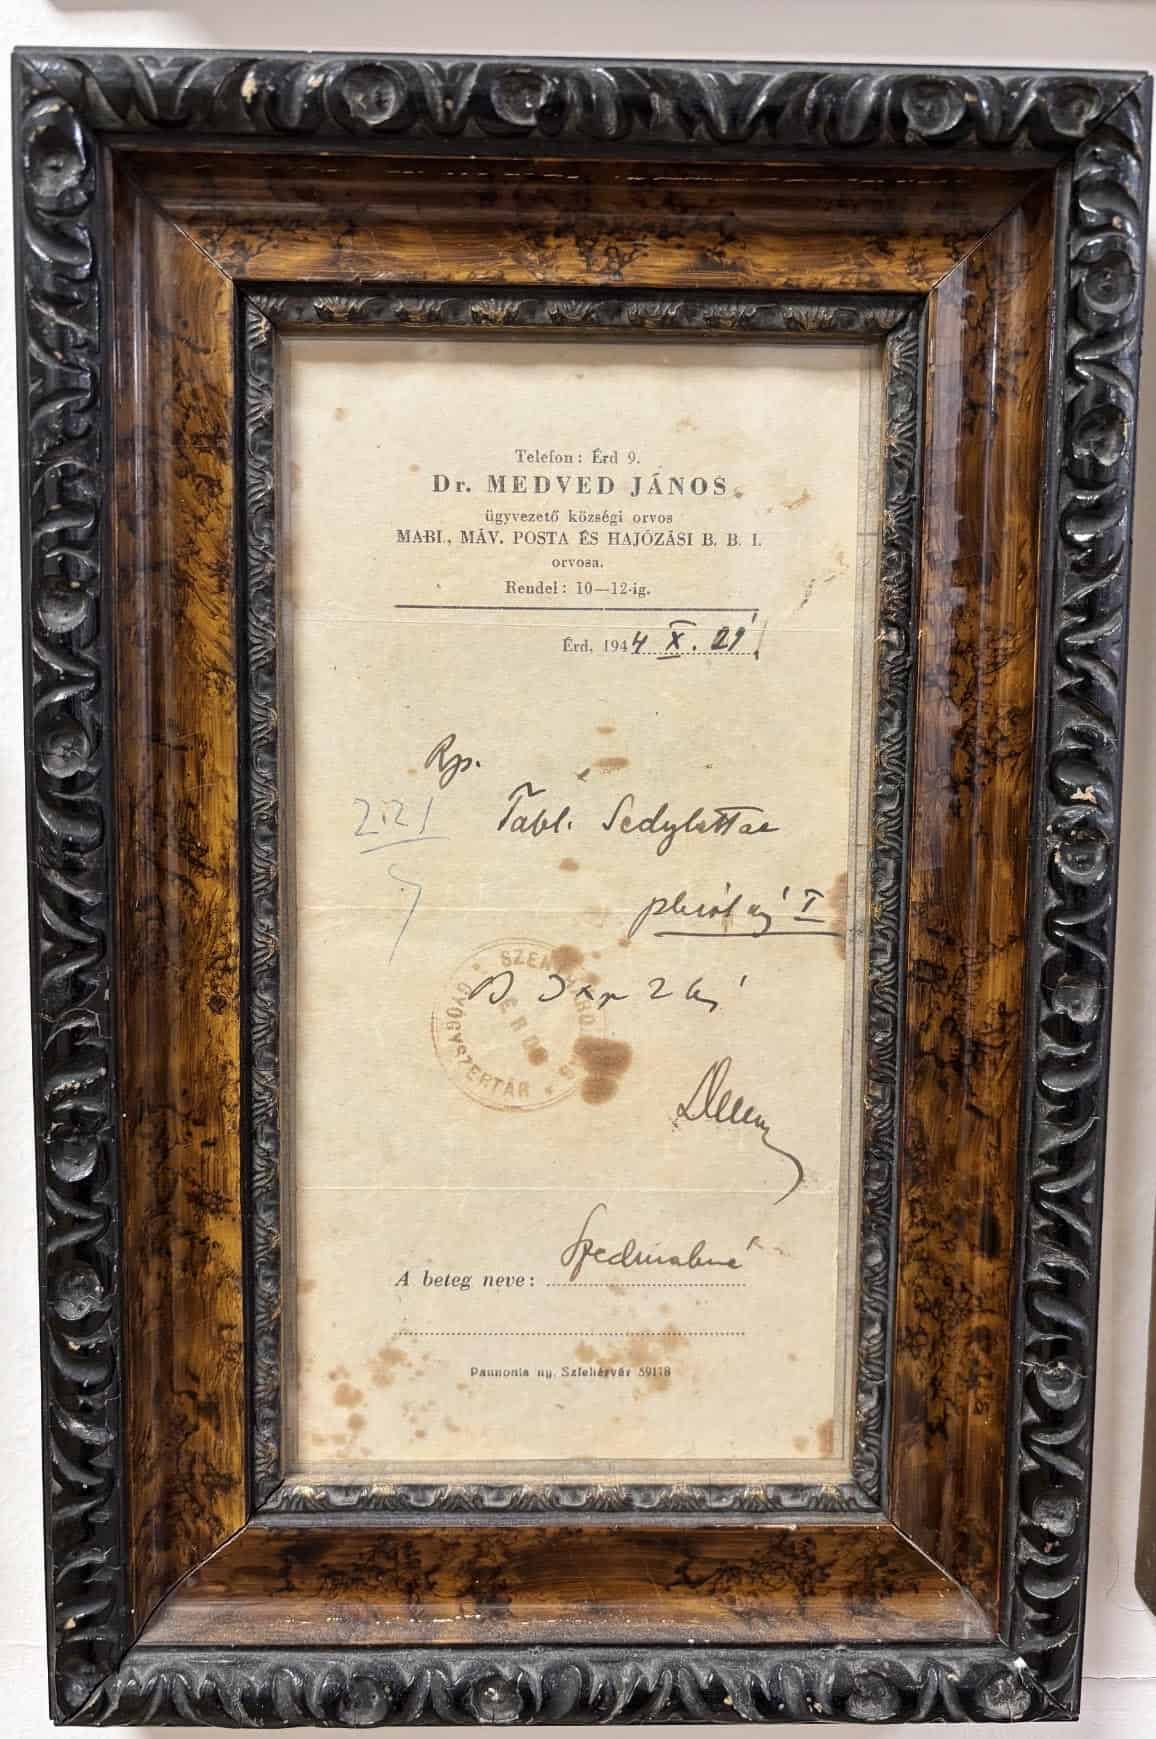 Telefon: Érd 9.
Dr. MEDVED JÁNOS
ügyvezető községi orvos
MABI., MÁV. POSTA ÉS HAJÓZÁSI B. B. I.
orvosa.
Rendel: 10—12-ig.
Érd, 1944 X. 21
Rp.
2.21
Tabl. Sedylettae
I
ÉRD
GYÓGYSZERTÁR
A beteg neve:
Pannonia ny. Szfehérvár 59178